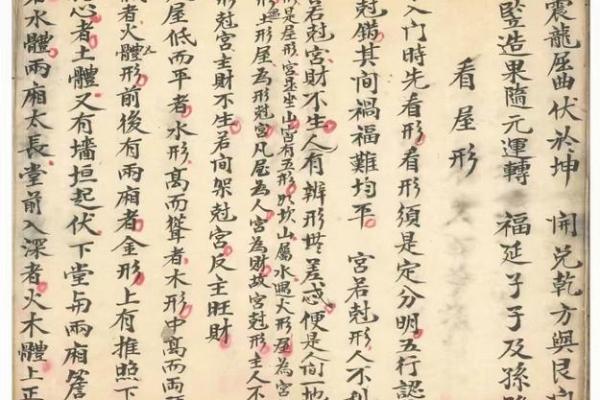 震龍屈曲伏於坤 開兌乾方與艮
豎造果隨元運轉 福延子子及孫
看屋形
入门時先看形看形須是定分明五行認
尅錯其间禍福難均平 宮若尅形人不利
若尅宮財不生人有辨形無差惑便是人间一地
形是屋形宮是坐山皆有五形如坎山屬水遇火形屋為宮
形土形屋為形尅宮凡屋為人宮為財故宮尅形主人不
尅宮主財不生若间架尅宮反主旺財
屋低而平者水形高而聳者木形中高而兩
者火體形前後有兩廂者金形上有推照下
心者土體又有墻垣起伏下堂與兩廂簷
水體兩廂太長堂前入深者火木體上正